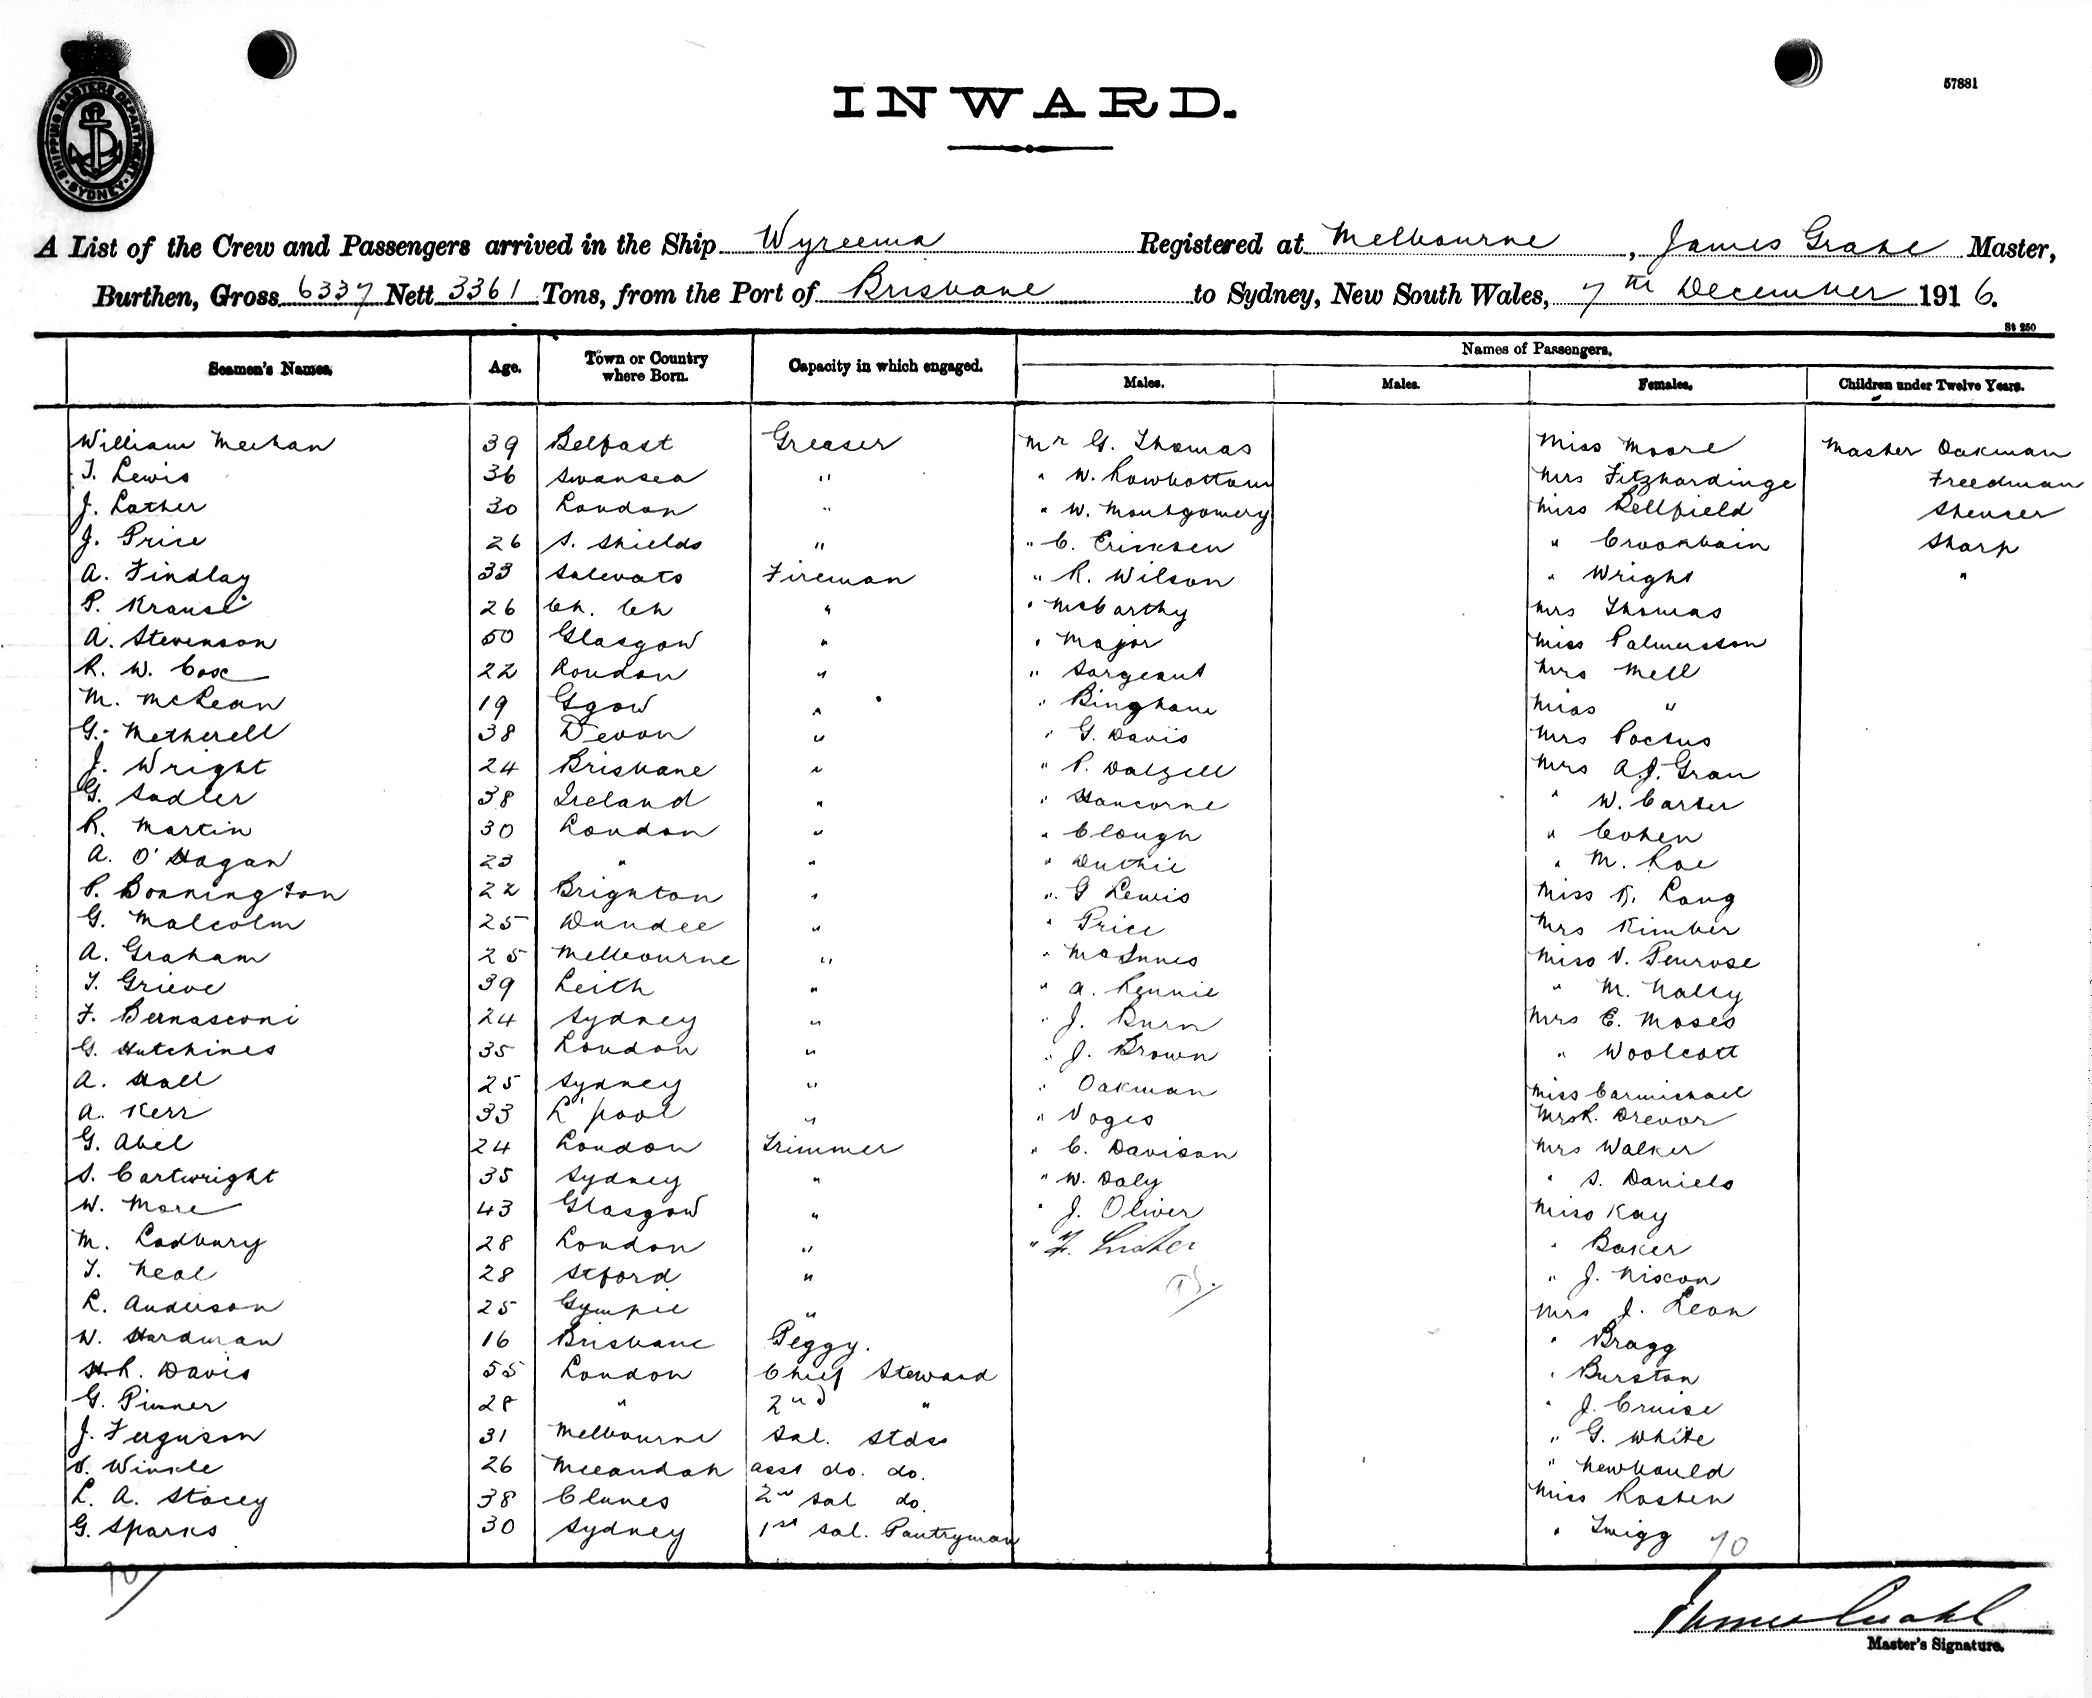 SHIPPING MASTERS DEPARTMENT · SYDNEY ·
57881
INWARD.
A List of the Crew and Passengers arrived in the Ship Wyreema Registered at Melbourne, James Grahl Master,
Burthen, Gross 6337 Nett 3361 Tons, from the Port of Brisbane to Sydney, New South Wales, 7th December 1916.
St 250
Seamen's Names. Age. Town or Country where Born. Capacity in which engaged. Names of Passengers.
Males. Males. Females. Children under Twelve Years.
William Meehan 39 Belfast Greaser Mr G. Thomas Miss Moore Master Oakman
T. Lewis 36 Swansea " " W. Rowbottom Mrs Fitzhardinge Freedman
J. Lather 30 London " " W. Montgomery Miss Bellfield Spenser
J. Price 26 S. Shields " " C. Ericksen " Crookbain Sharp
A. Findlay 33 Fireman " R. Wilson " Wright "
P. Krause 26 Ch. Ch " " McCarthy Mrs Thomas
A. Stevenson 50 Glasgow " " Major Miss Palmerston
R. W. Cox 22 London " " Sargeant Mrs Mell
M. McLean 19 Ggow " " Bingham Miss "
G. Metherell 38 Devon " " G. Davis Mrs Poctus
J. Wright 24 Brisbane " " P. Dalzell Mrs A.J. Gran
G. Sadler 38 Ireland " " Hancorne " W. Carter
R. Martin 30 London " " Clough " Cohen
A. O'Hagan 23 " " " Duthie " M. Rae
P. Bonnington 22 Brighton " " G Lewis Miss K. Lang
G. Malcolm 25 Dundee " " Price Mrs Kimber
A. Graham 25 Melbourne " " McInnes Miss V. Penrose
T. Grieve 39 Leith " " A. Rennie " M. Nalty
F. Bernasconi 24 Sydney " " J. Burn Mrs E. Moses
G. Hutchines 35 London " " J. Brown " Woolcott
A. Hall 25 Sydney " " Oakman Miss Carmichael
A. Kerr 33 L'pool " " Voges Mrs R. Drevor
G. Abel 24 London Trimmer " C. Davison Mrs Walker
S. Cartwright 35 Sydney " " W. Daly " S. Daniels
W. More 43 Glasgow " " J. Oliver Miss Kay
M. Ladbury 28 London " " " Baker
T. Neal 28 Stford " " J. Nixon
L. Anderson 25 Gympie " Mrs J. Leon
W. Hardman 16 Brisbane Peggy. " Bragg
H.L. Davis 55 London Chief Steward " Burston
G. Pinner 28 " 2nd " " J. Cruise
J. Ferguson 31 Melbourne Sal. Stdss " G. White
V. Winkle 26 Meeandah asst do. do. " Newbould
L. A. Stacey 38 Clunes 2nd Sal do. Miss Rosten
G. Sparks 30 Sydney 1st Sal. Pantryman " Twigg 70
James Grahl
Master's Signature.